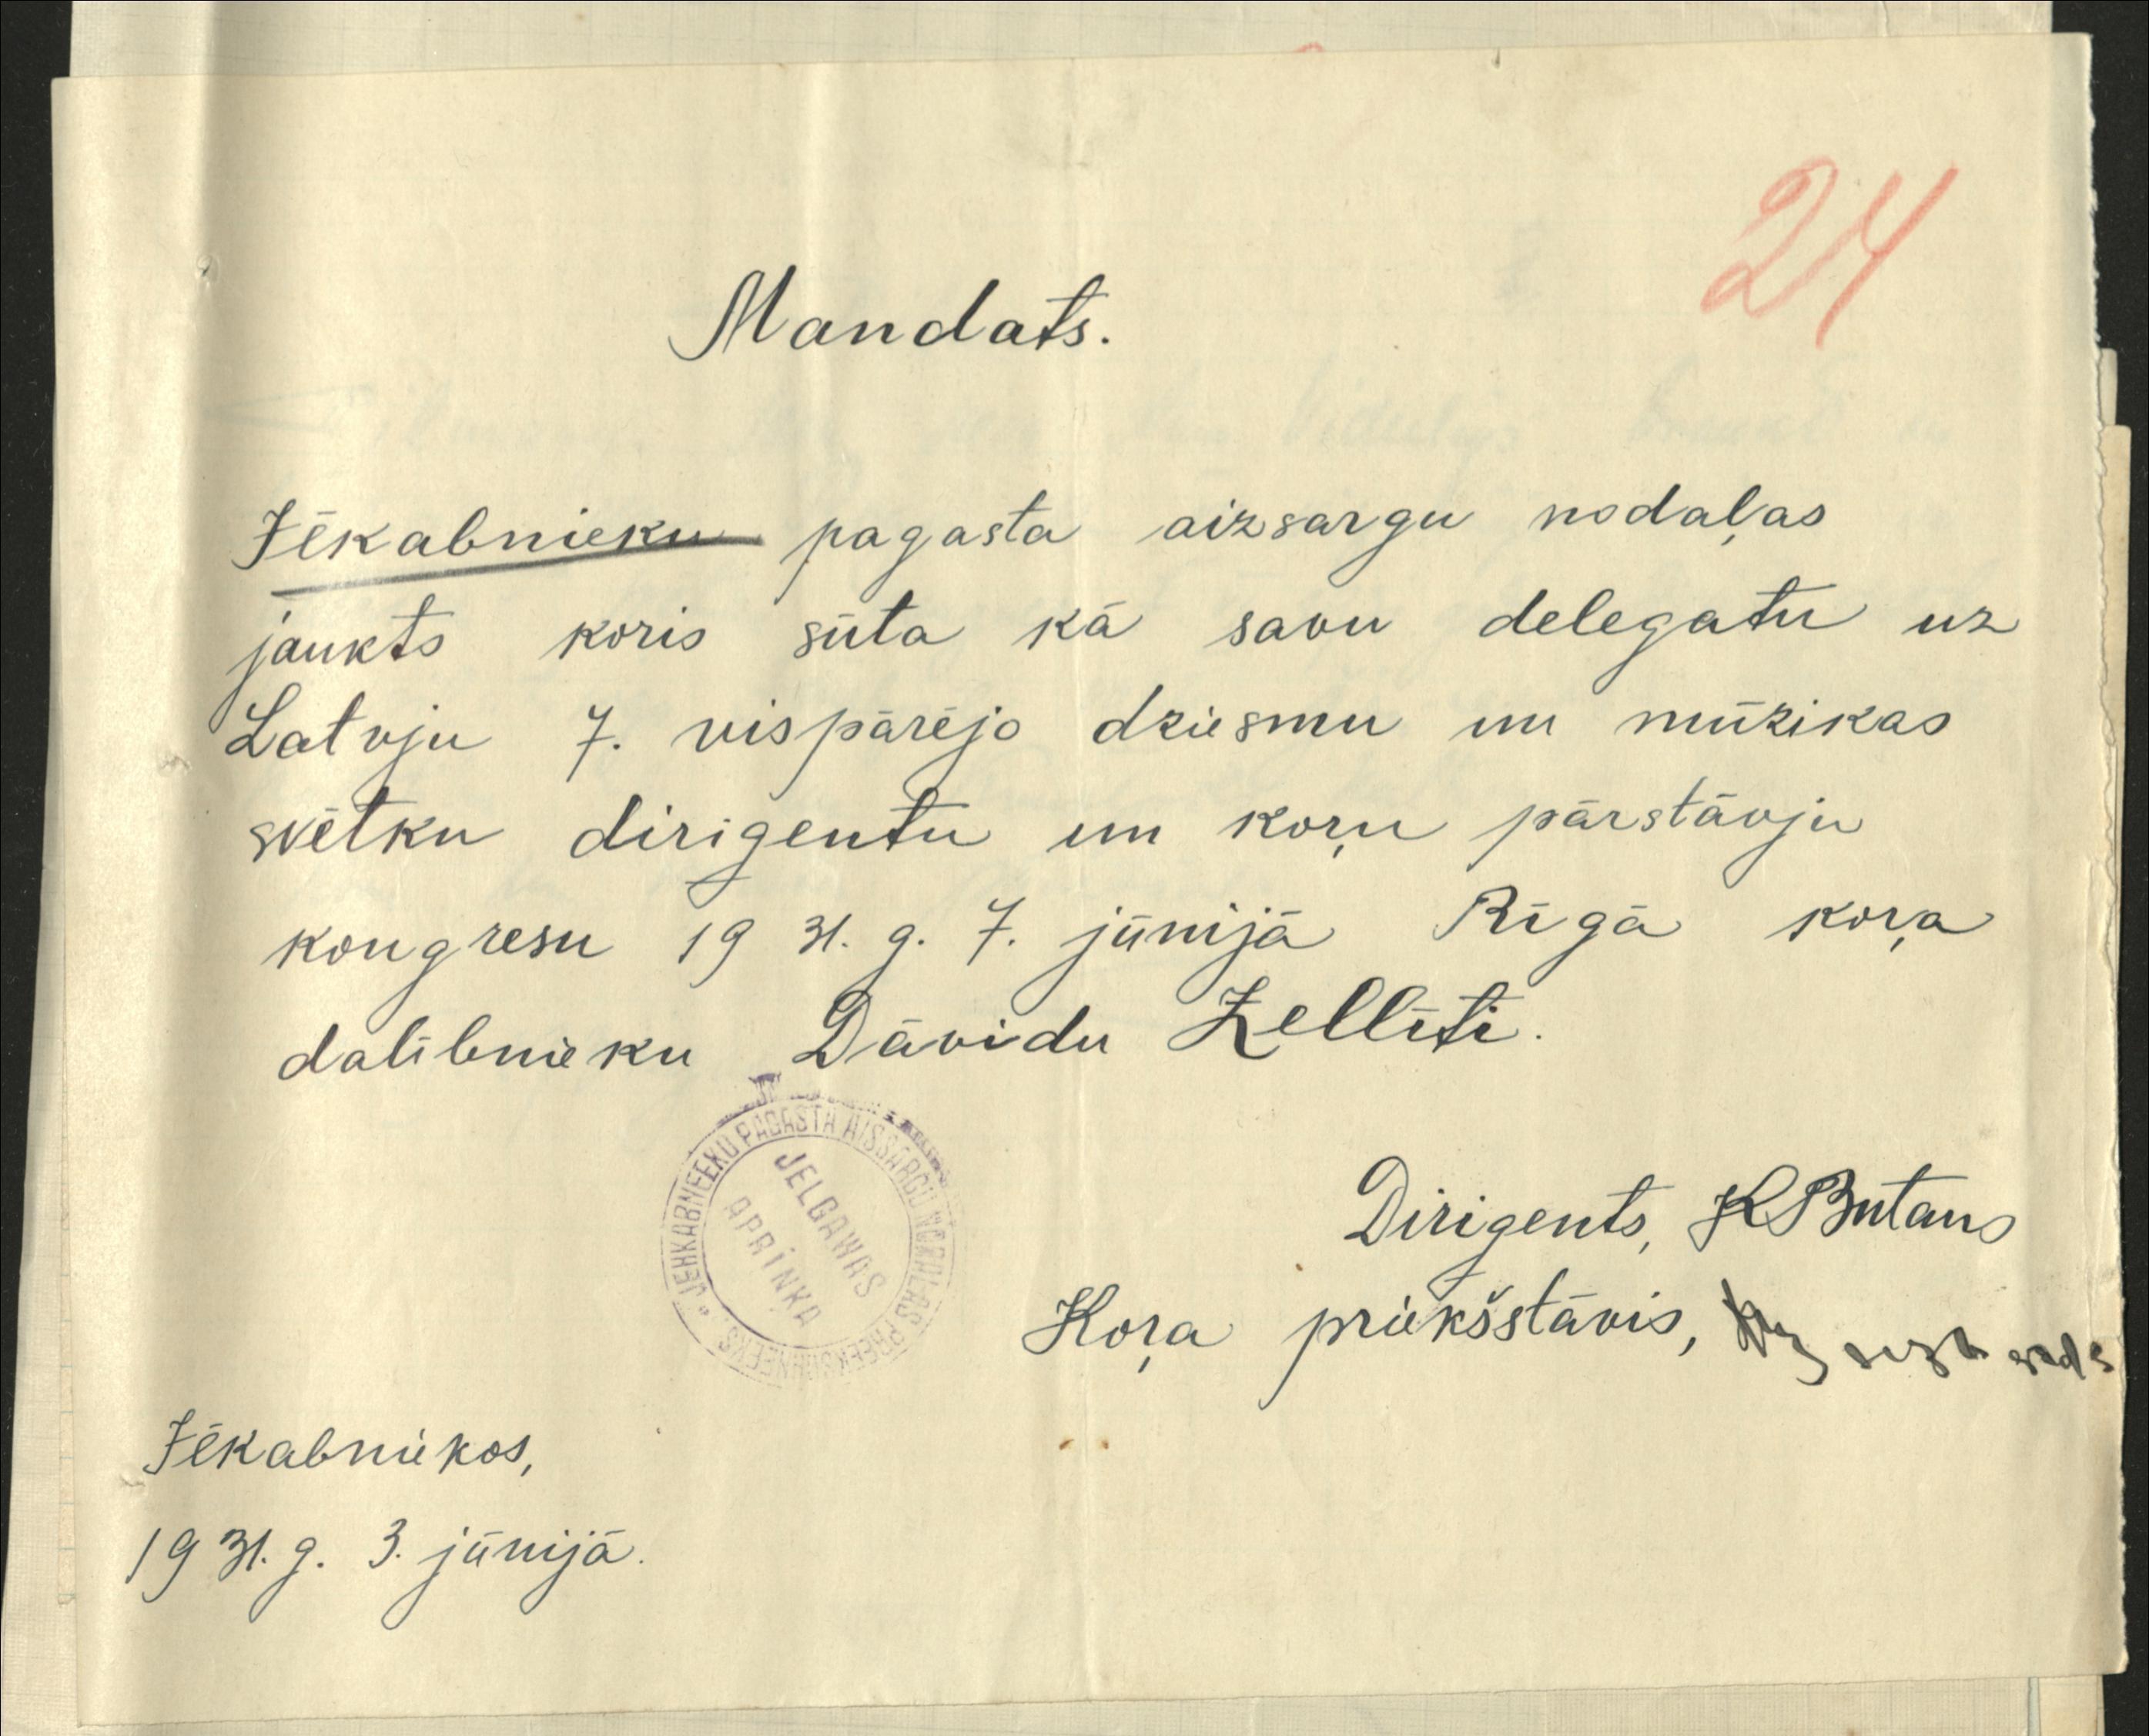 24
Mandats.
Jēkabnieku pagasta aizsargu nodaļas
jaukts koris sūta kā savu delegatu uz
Latvju 7. vispārējo dziesmu un mūzikas
svētku dirigentu un koŗu pārstāvju
kongresu 1931. g. 7. jūnijā Rīgā koŗa
dalībnieku Dāvidu Zellīti.
"JEHKABNEEKU PAGASTA AISSARGU NODAĻAS PREEKSCHNEEKS"
JELGAWAS
APRIŅĶA
Dirigents, KButans
Koŗa priekšstāvis,
Jēkabniekos,
1931. g. 3. jūnijā.